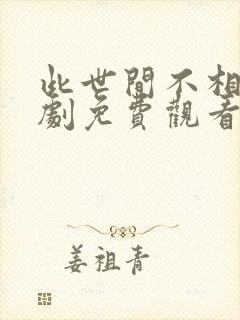 此世間不相
劇免費觀看
姜祖青